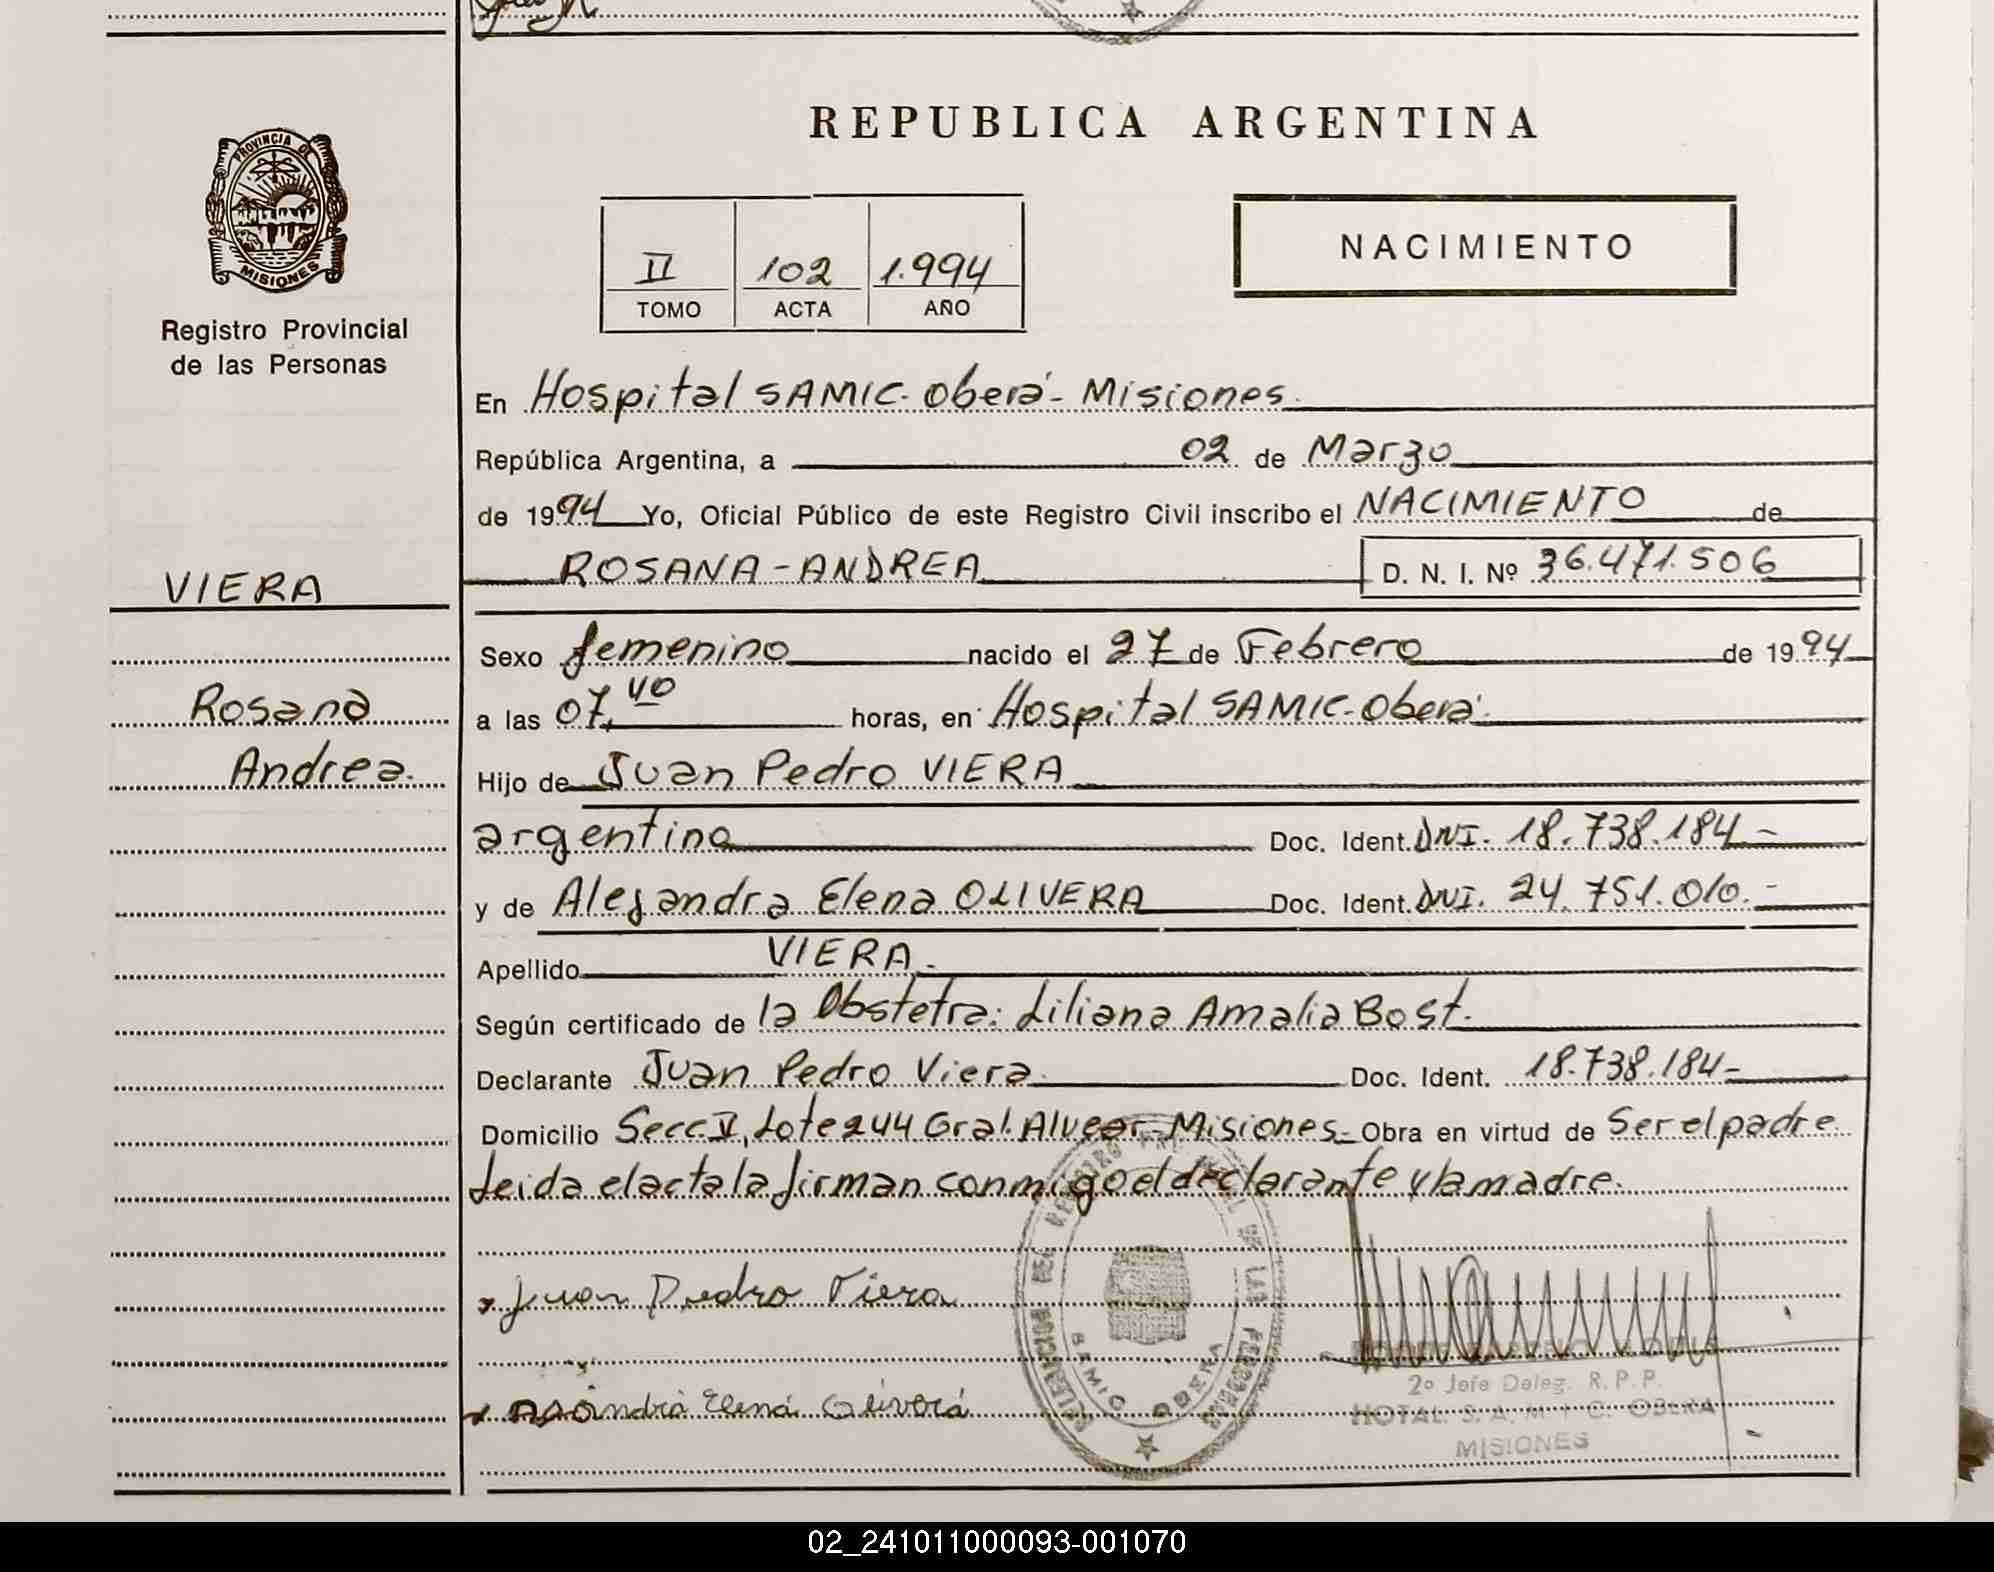 REPUBLICA ARGENTINA
PROVINCIA DE
MISIONES
Registro Provincial
de las Personas
II 102 1.994
TOMO ACTA AÑO
NACIMIENTO
En Hospital SAMIC - Oberá - Misiones.
República Argentina, a 02 de Marzo
de 1994 Yo, Oficial Público de este Registro Civil inscribo el NACIMIENTO de
ROSANA - ANDREA D. N. I. Nº 36.471.506
VIERA
Rosana
Andrea.
Sexo femenino nacido el 27 de Febrero de 1994
a las 07,40 horas, en Hospital SAMIC - Oberá.
Hijo de Juan Pedro VIERA
argentino Doc. Ident. DNI. 18.738.184 -
y de Alejandra Elena OLIVERA Doc. Ident. DNI. 24.751.010. -
Apellido VIERA.
Según certificado de la Obstetra: Liliana Amalia Bost.
Declarante Juan Pedro Viera Doc. Ident. 18.738.184 -
Domicilio Secc. V, Lote 244 Gral. Alvear - Misiones - Obra en virtud de Ser el padre
Leida el acta la firman conmigo el declarante y la madre.
Juan Pedro Viera
Elena Olivera
DEL REGISTRO DE LAS PERSONAS
SAMIC OBERA
2º Jefe Deleg. R. P. P.
HOTAL. S. A. M. I. C. OBERA
MISIONES
02_241011000093-001070